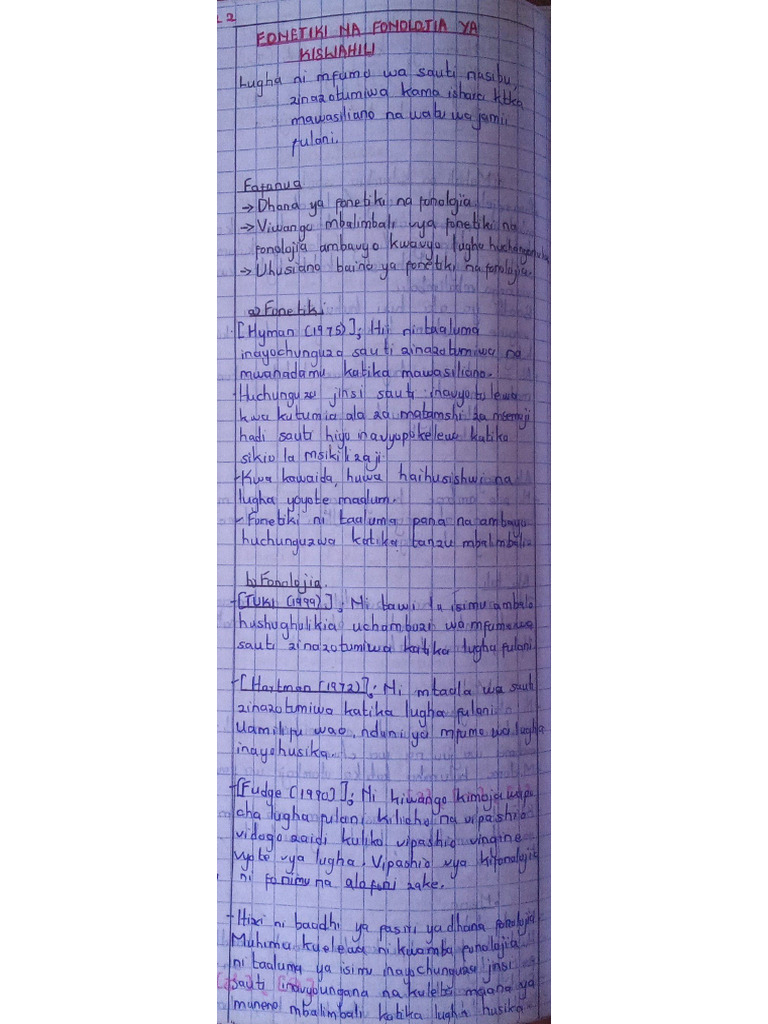 2
FONETIKI NA FONOLOJIA YA
KISWAHILI
Lugha ni mfumo wa sauti nasibu,
zinazotumiwa kama ishara ktka
mawasiliano na watu wa jamii
fulani.
Fafanua
→ Dhana ya fonetiki na fonolojia.
→ Viwango mbalimbali vya fonetiki na
fonolojia ambavyo kwavyo lugha
→ Uhusiano baina ya fonetiki na fonolojia.
a) Fonetiki
- [Hyman (1975)]; Hii ni taaluma
inayochunguza sauti zinazotumiwa na
mwanadamu katika mawasiliano.
- Huchunguza jinsi sauti inavyotolewa
kwa kutumia ala za matamshi za msemaji
hadi sauti hiyo inavyopokelewa katika
sikio la msikilizaji.
- Kwa kawaida, huwa haihusishwi na
lugha yoyote maalum.
- Fonetiki ni taaluma pana na ambayo
huchunguzwa katika tanzu mbalimbali.
b) Fonolojia.
- [TUKI (1990)]; Ni tawi la isimu ambalo
hushughulikia uchambuzi wa mfumo wa
sauti zinazotumiwa katika lugha fulani
- [Hartman (1972)]; Ni mtaala wa sauti
zinazotumiwa katika lugha fulani
Uamilifu wao, ndani ya mfumo wa lugha
inayohusika.
- [Fudge (1990)]; Ni kiwango kimojawapo
cha lugha fulani kilicho na vipashio
vidogo zaidi kuliko vipashio vingine
vyote vya lugha. Vipashio vya kifonolojia
ni fonimu na alofoni zake.
- Hizi ni baadhi ya fasiri ya dhana fonolojia
Muhimu kuelewa ni kwamba fonolojia
ni taaluma ya isimu inayochunguza jinsi
sauti inavyoungana na kuleta maana ya
maneno mbalimbali katika lugha husika.